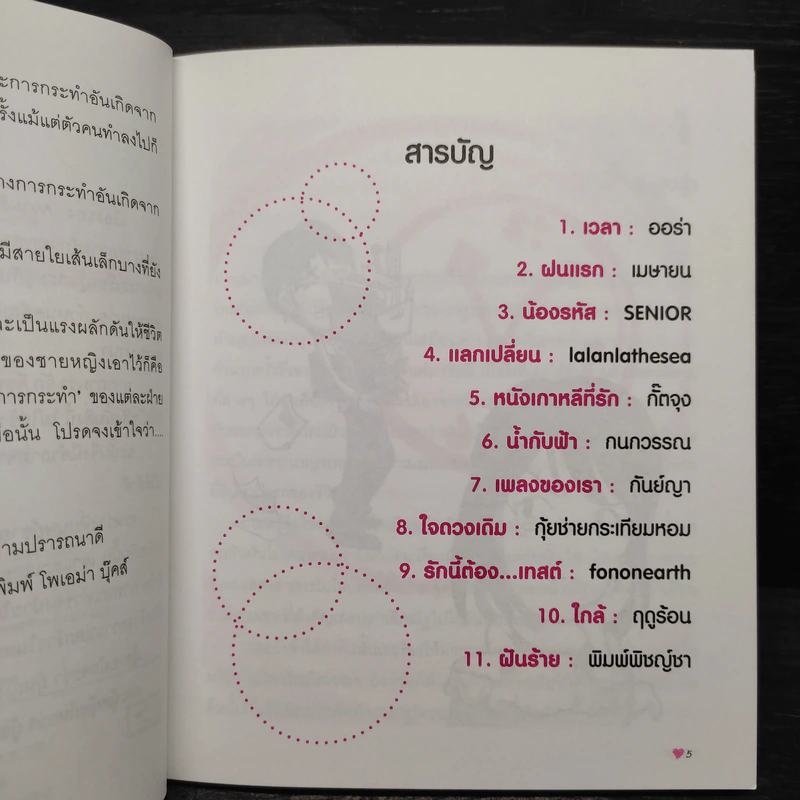 ะการกระทำอันเกิดจาก
รั้งแม้แต่ตัวคนทำลงไปก็
างการกระทำอันเกิดจาก
มีสายใยเส้นเล็กบางที่ยัง
ละเป็นแรงผลักดันให้ชีวิต
ของชายหญิงเอาไว้ก็คือ
การกระทำ' ของแต่ละฝ่าย
อนั้น โปรดจงเข้าใจว่า....
ามปรารถนาดี
พิมพ์ โพเอม่า บุ๊คส์
สารบัญ
1. เวลา : ออร่า
2. ฝนแรก : เมษายน
3. น้องรหัส : SENIOR
4. แลกเปลี่ยน : lalanlathesea
5. หนังเกาหลีที่รัก : กั๊ตจุง
6. น้ำกับฟ้า : กนกวรรณ
7. เพลงของเรา : กันย์ญา
8. ใจดวงเดิม : กุ้ยช่ายกระเทียมหอม
9. รักนี้ต้อง...เทสต์ : fononearth
10. ใกล้ : ฤดูร้อน
11. ฝันร้าย : พิมพ์พิชญ์ชา
5